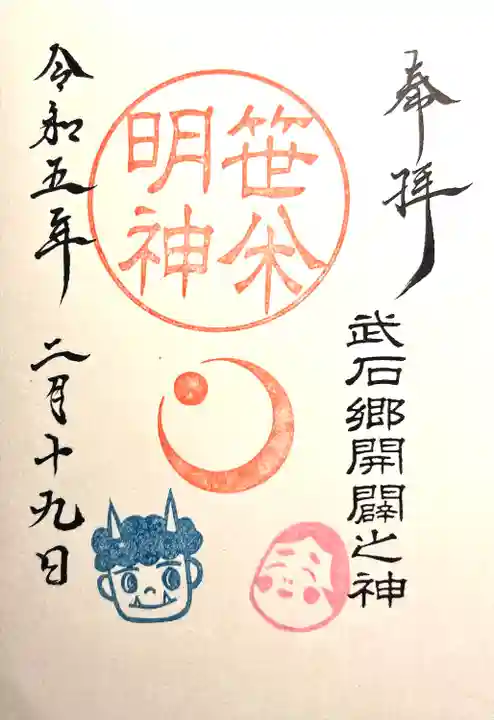 奉拝
武石郷開闢之神
笹
明神
令和五年二月十九日